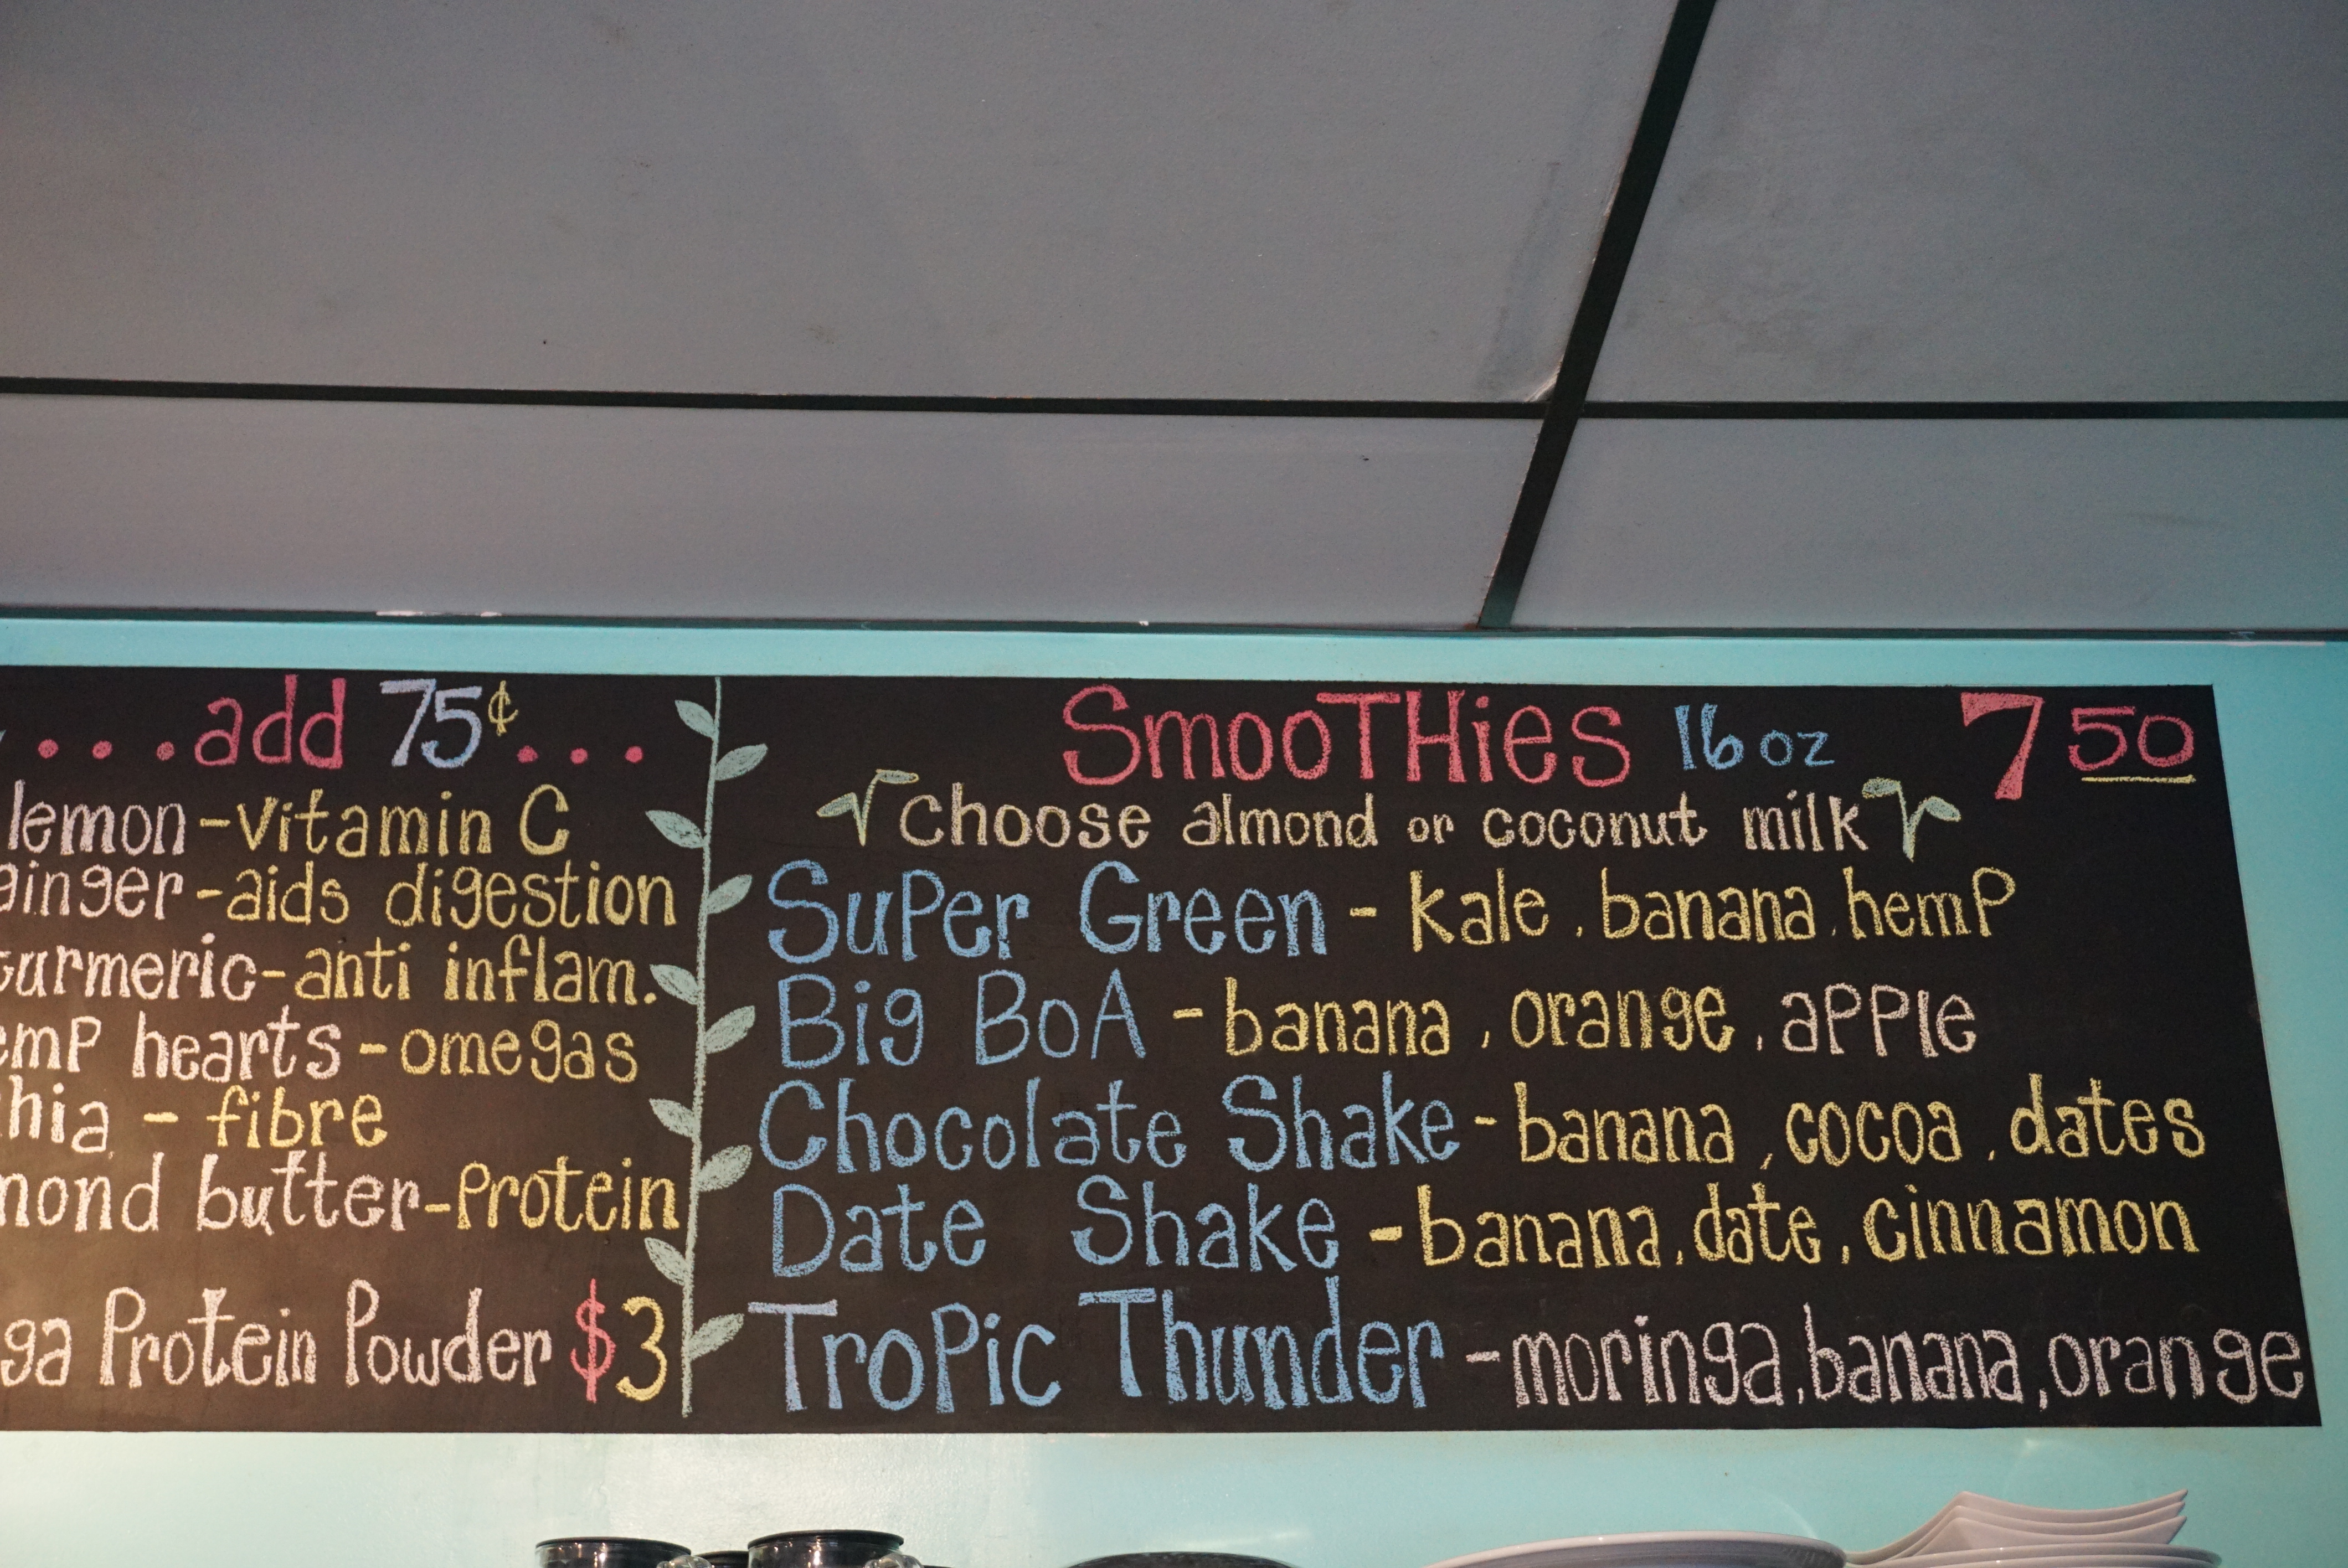 ...add 75¢...
lemon-vitamin C
ginger-aids digestion
turmeric-anti inflam.
hearts-omegas
- fibre
butter-Protein
Protein Powder $3
SmooTHies 16 oz 7 50
choose almond or coconut milk
SuPer Green - kale, banana, hemP
Big BoA - banana, orange, aPPle
Chocolate Shake - banana, cocoa, dates
Date Shake - banana, date, cinnamon
TroPic Thunder - moringa, banana, orange